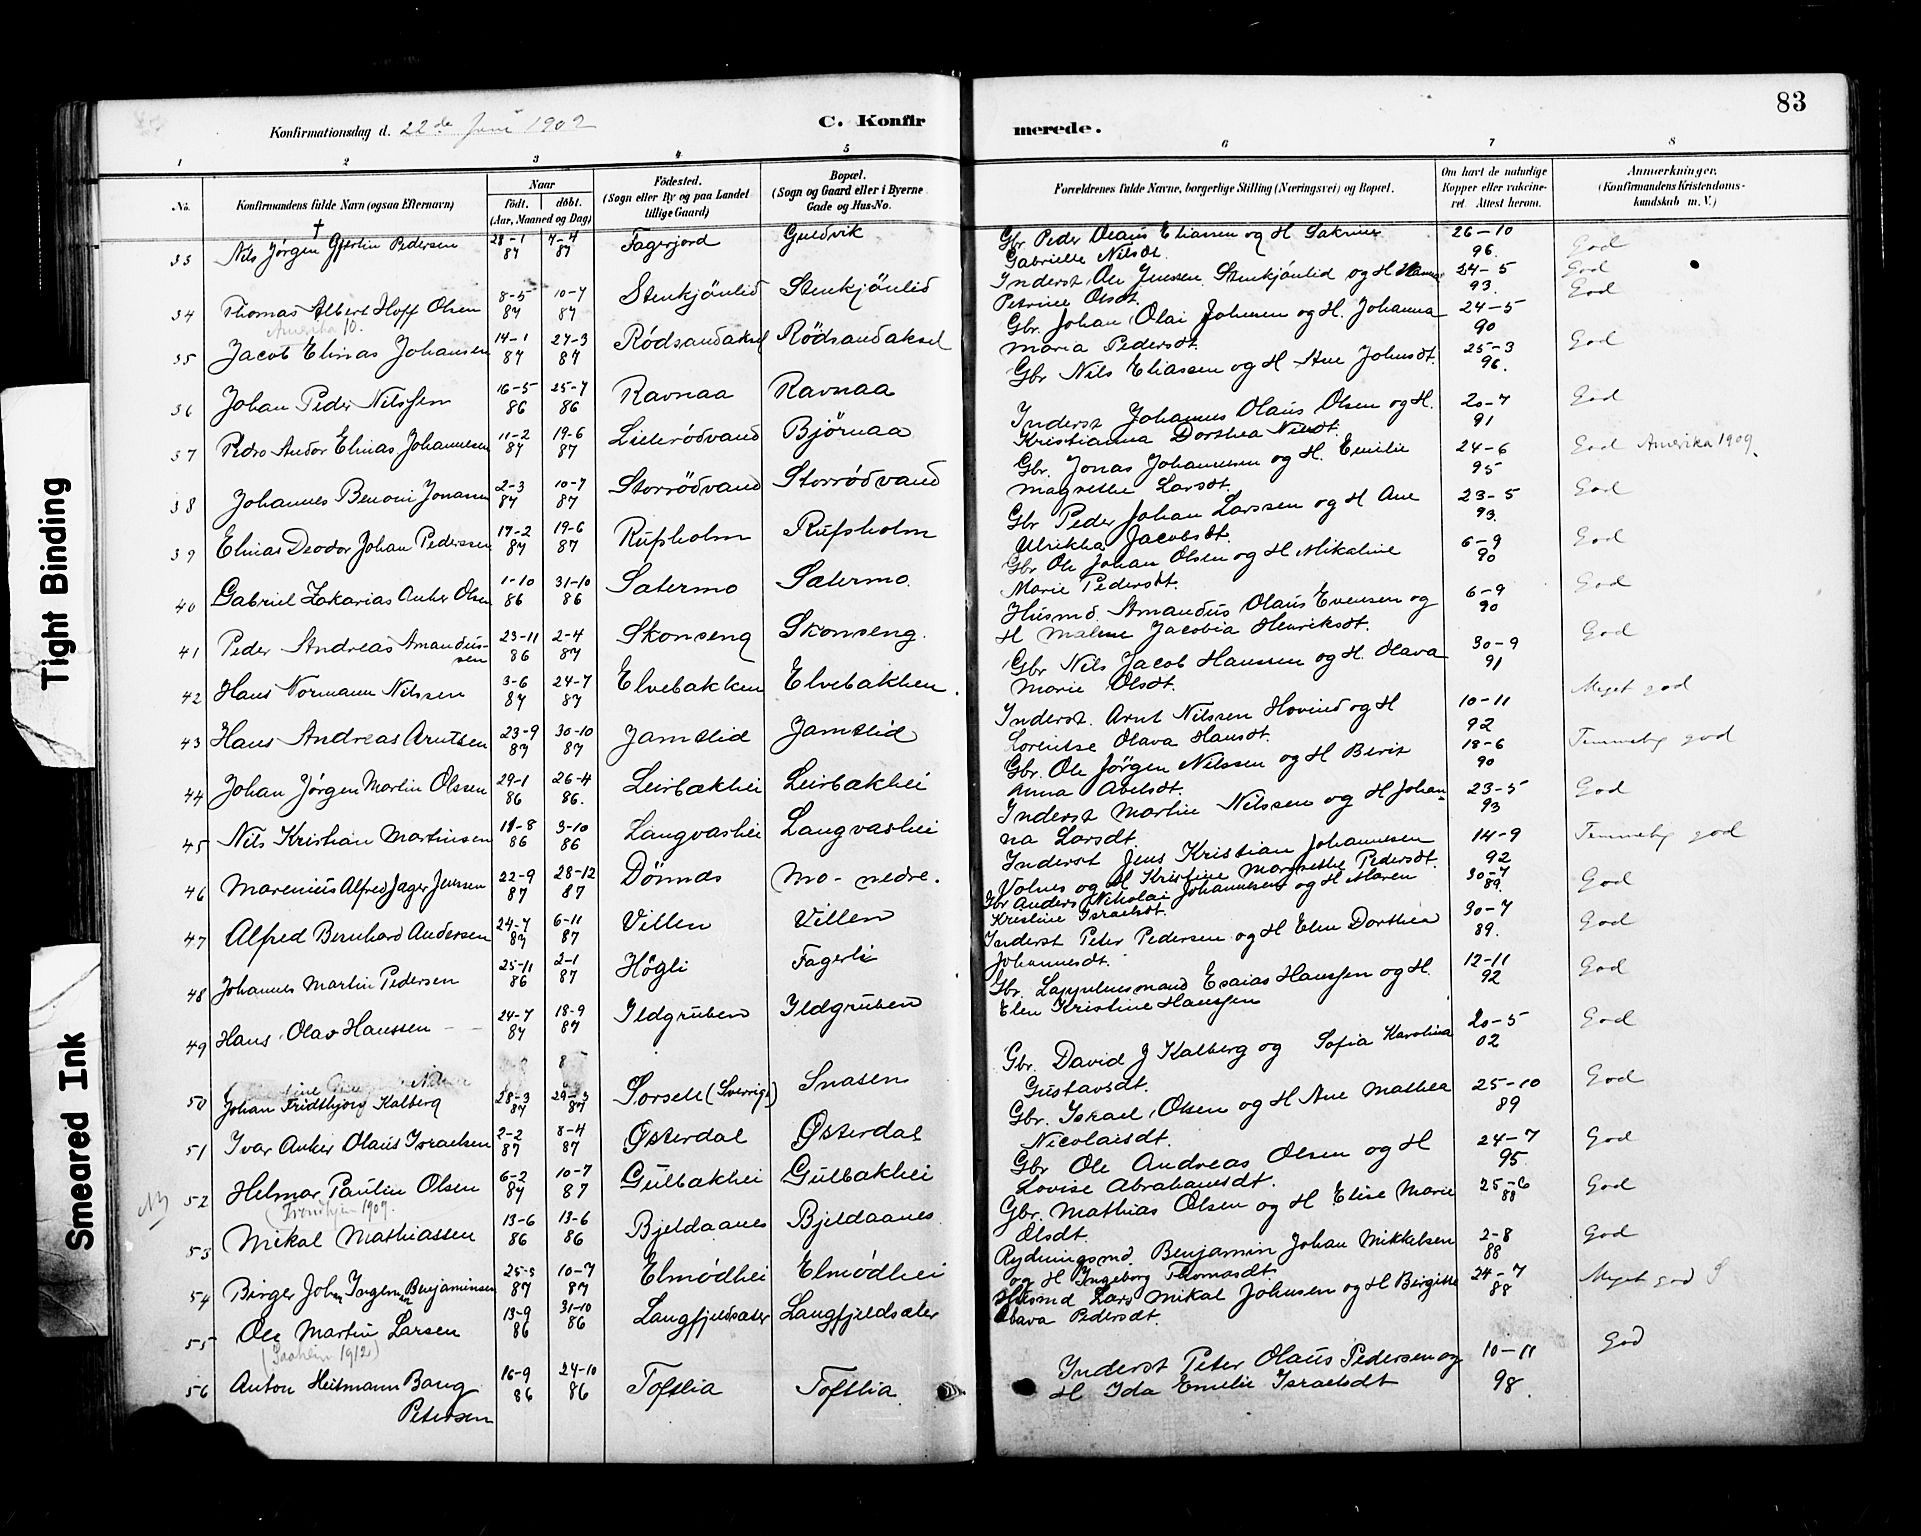 83
Konfirmationsdag d. 22de Juni 1902
C. Konfirmerede.
1 2 3 4 5 6 7 8
No. Konfirmandens fulde Navn (ogsaa Efternavn) Naar födt. döbt. (Aar, Maaned og Dag) Födested. (Sogn eller By og paa Landet tillige Gaard) Bopæl. (Sogn og Gaard eller i Byerne Gade og Hus-No. Forældrenes fulde Navne, borgerlige Stilling (Næringsvei) og Bopæl. Om havt de naturlige Kopper eller vakcineret. Attest herom. Anmærkninger. (Konfirmandens Kristendomskundskab m. V.)
33 Nils Jørgen Gjertin Pedersen 28-1 87 4-4 87 Fagerjord Guldvik Gbr Peder Olaus Eliassen og H Gabrielle Nilsdt. 26-10 96. God
34 Thomas Albert Hoff Olsen 8-5 87 10-7 87 Stenkjönlid Stenkjönlid Inderst Ole Jenssen Stenkjönlid og H Hanna Petrine Olsdt. 24-5 93. God
Amerika 10.
35 Jacob Elinas Johansen 14-1 87 27-3 87 Rødsandaksel Rödsandaksel Gbr. Johan Olai Johnsen og H. Johanna Maria Pedersdt. 24-5 90 God
36 Johan Peder Nilssen 16-5 86 25-7 86 Ravnaa Ravnaa Gbr Nils Eliassen og H Ane Johnsdt. 25-3 96. God
37 Pedro Andor Elinas Johannesen 11-2 87 19-6 87 Lillerødvand Björnaa Inderst Johannes Olaus Olsen og H. Kristianna Dorthea 20-7 91 God
38 Johannes Benoni Jonasen 2-3 87 10-7 87 Storrödvand Storrödvand Gbr. Jonas Johannesen og H. Emilie Magrethe Larsdt. 24-6 95 God Amerika 1909.
39 Elinas Deodor Johan Pederssen 17-2 87 19-6 87 Rufsholm Rufsholm Gbr Peder Johan Larssen og H Ane Ulrikka Jacobsdt. 23-5 93. God
40 Gabriel Zakarias Anker Olsen 1-10 86 31-10 86 Satermo Sætermo. Gbr Ole Johan Olsen og H Mikaline Marie Pedersdt. 6-9 90 God
41 Peder Andreas Amandussen 23-11 86 2-4 87 Skonseng Skonseng. Husmd. Amandus Olaus Evensen og H Malene Jacobia Henriksdt. 6-9 90 God
42 Hans Normann Nilssen 3-6 87 24-7 87 Elvebakken Elvebakken. Gbr Nils Jacob Hanssen og H. Olava Marie Olsdt. 30-9 91 God
43 Hans Andreas Arntsen 23-9 87 30-10 87 Jamtlid Jamtlid Inderst. Arnt Nilssen Hovind og H Lorentse Olava Hansdt. 10-11 92 Meget god
44 Johan Jørgen Martin Olssen 29-1 86 26-4 86. Leirbakhei Leirbakhei Gbr. Ole Jörgen Nilssen og H Berit Anna Abelsdt. 18-6 90 Temmelig god
45 Nils Kristian Martinsen 18-8 86 3-10 86 Langvashei Langvashei Inderst Martin Nilssen og H Johanna Larsdt. 23-5 93 God
46 Marenius Alfred Jager Jenssen 22-9 87 28-12 87 Dönnæs Mo-nedre. Inderst Jens Kristian Johannesen Volnes og H Kristine Margrethe Pedersdt. 14-9 92 Temmelig god
47 Alfred Bernhard Andersen 24-7 87 6-11 87 Villen Villen Gbr Anders Nikolai Johannesen og H Maren Kristine Israelsdt. 30-7 89. God
48 Johannes Martin Pedersen 25-11 86 2-1 87 Högli Fagerli Inderst Peter Pedersen og H Elen Dorthea Johannesdt. 30-7 89. God
49 Hans Olav Hanssen 24-7 87 18-9 87 Ildgruben Ildgruben Gbr. Lappelensmand Esaias Hanssen og H. Elen Kristine Hanssen 12-11 92 God
50 Johan Fridtbjörg Kalberg 28-3 87 29-3 87 Sorsele (Sverige) Snasen Gbr. David J Kalberg og Sofia Karolina Gustavsdt. 20-5 02 God
51 Ivar Anker Olaus Israelsen 2-2 87 8-4 87 Østerdal Østerdal Gbr. Israel Olsen og H Ane Mathea Nicolaisdt. 25-10 89 God
52 Helmar Paulin Olsen 6-2 87 10-7 87 Gulbakhei Gulbakhei Gbr Ole Andreas Olsen og H Lovise Abrahamsdt. 24-7 95. God
(Trondhjem 1909.
53 Mikal Mathiassen 13-6 86 13-6 86 Bjeldaanes Bjeldaanes Gbr. Mathias Olsen og H Elise Marie Olsdt. 25-6 88 God
54 Birger Johan Jørgen Benjaminsen 25-5 87 10-7 87 Elmødhei Elmödhei Rydningsmd. Benjamin Johan Mikkelsen og H Ingeborg Thomasdt. 2-8 88 God
55 Ole Martin Larsen 13-9 86 31-10 86 Langfjeldsæter Langfjeldsæter Husmd Lars Mikal Johnsen og H Birgitte Olava Pedersdt. 24-7 88 Meget god
(Saaheim 1912)
56 Anton Heitmann Bang Petersen 16-9 86 24-10 86 Toftlia Toftlia Inderst Peter Olaus Pedersen og H Ida Emelie Israelsdt 10-11 98. God
Tight Binding
Smeared Ink